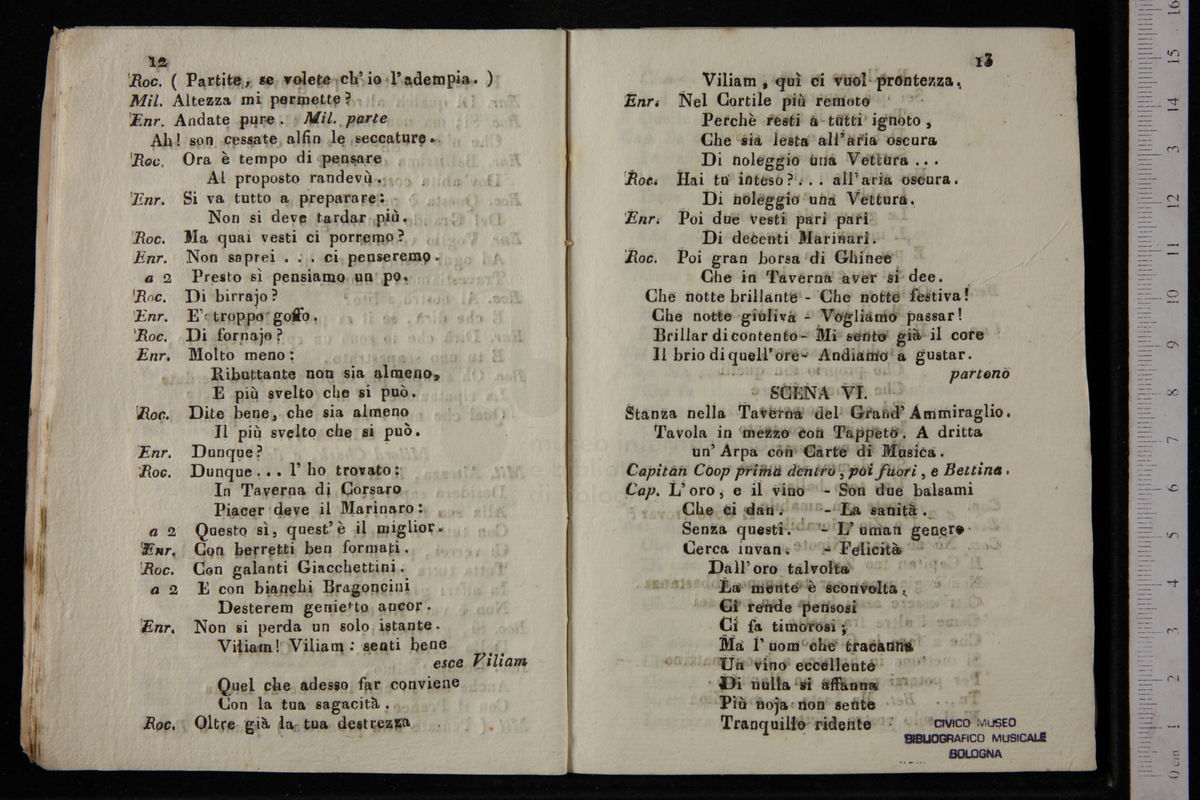 12
Roc. ( Partite, se volete ch' io l' adempia. )
Mil. Altezza mi permette?
Enr. Andate pure. Mil. parte
Ah! son cessate alfin le seccature.
Roc. Ora è tempo di pensare
Al proposto randevù.
Enr. Si va tutto a preparare:
Non si deve tardar più.
Roc. Ma quai vesti ci porremo?
Enr. Non saprei . . . ci penseremo.
a 2 Presto sì pensiamo un po.
Roc. Di birrajo?
Enr. E' troppo goffo.
Roc. Di fornajo?
Enr. Molto meno:
Ributtante non sia almeno,
E più svelto che si può.
Roc. Dite bene, che sia almeno
Il più svelto che si può.
Enr. Dunque?
Roc. Dunque . . . l' ho trovato:
In Taverna di Corsaro
Piacer deve il Marinaro:
a 2 Questo sì, quest' è il miglior.
Enr. Con berretti ben formati.
Roc. Con galanti Giacchettini.
a 2 E con bianchi Bragoncini
Desterem genietto ancor.
Enr. Non si perda un solo istante.
Viliam! Viliam: senti bene
esce Viliam
Quel che adesso far conviene
Con la tua sagacità.
Roc. Oltre già la tua destrezza
13
Viliam, quì ci vuol prontezza,
Enr. Nel Cortile più remoto
Perchè resti a tutti ignoto,
Che sia lesta all' aria oscura
Di noleggio una Vettura . . .
Roc. Hai tu inteso? . . . all' aria oscura.
Di noleggio una Vettura.
Enr. Poi due vesti pari pari
Di decenti Marinari.
Roc. Poi gran borsa di Ghinee
Che in Taverna aver si dee.
Che notte brillante - Che notte festiva!
Che notte giuliva - Vogliamo passar!
Brillar di contento - Mi sento già il core
Il brio di quell' ore - Andiamo a gustar.
partono
SCENA VI.
Stanza nella Taverna del Grand' Ammiraglio.
Tavola in mezzo con Tappeto. A dritta
un' Arpa con Carte di Musica.
Capitan Coop prima dentro, poi fuori, e Bettina.
Cap. L' oro, e il vino - Son due balsami
Che ci dan. - La sanità.
Senza questi. - L' uman genere
Cerca invan. - Felicità
Dall' oro talvolta
La mente è sconvolta,
Ci rende pensosi
Ci fa timorosi;
Ma l' uom che tracanna
Un vino eccellente
Di nulla si affanna
Più noja non sente
Tranquillo ridente
CIVICO MUSEO
BIBLIOGRAFICO MUSICALE
BOLOGNA